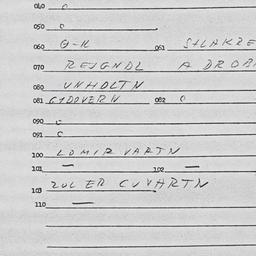 040 0
050 0
060 0-R 061 SILAKRE
070 REJGNDL A DROB
080 VNHOLTN
081 GIDOVERN 082 0
090 0
091 0
100 LOMIR VARTN
101 — 102 —
103 ZOL ER CUVARTN
110 —